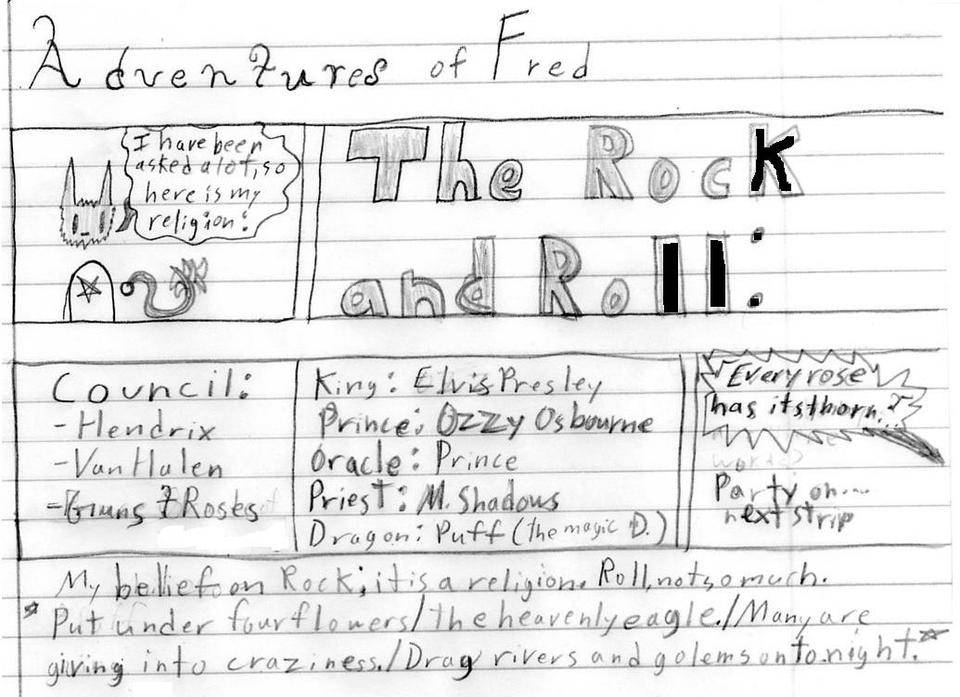 Adventures of Fred
I have been
asked a lot, so
here is my
religion:
The Rock
and Roll:
Council:
- Hendrix
- Van Halen
- Guns & Roses
King: Elvis Presley
Prince: Ozzy Osbourne
Oracle: Prince
Priest: M. Shadows
Dragon: Puff (the magic D.)
Every rose
has its thorn..?
Party on....
next strip
My belief on Rock; it is a religion. Roll, not so much.
*Put under four flowers/The heavenly eagle./Many are
giving into craziness./Drag rivers and golems onto night.*